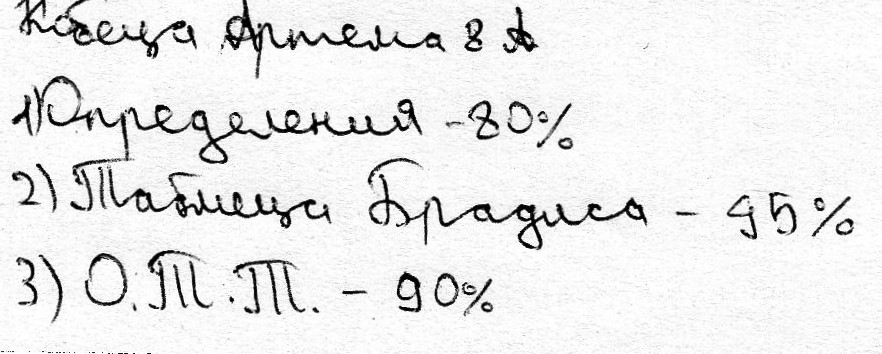 Артема 8 А
1) Определения - 80%
2) Таблица Брадиса - 95%
3) О.Т.Т. - 90%